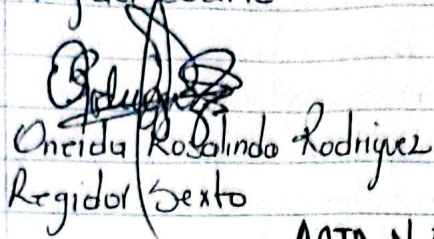 Oneida Rosalinda Rodriguez
Regidor Sexto
ACTA N